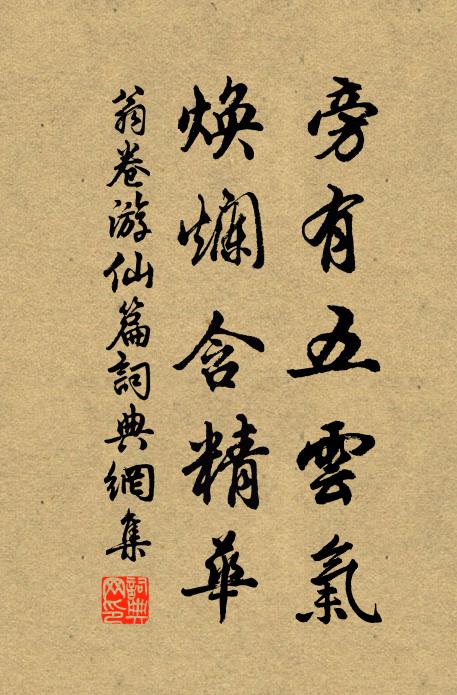 旁有五雲氣
煥爛含精華
翁卷游仙篇詞典網集
詞典网印